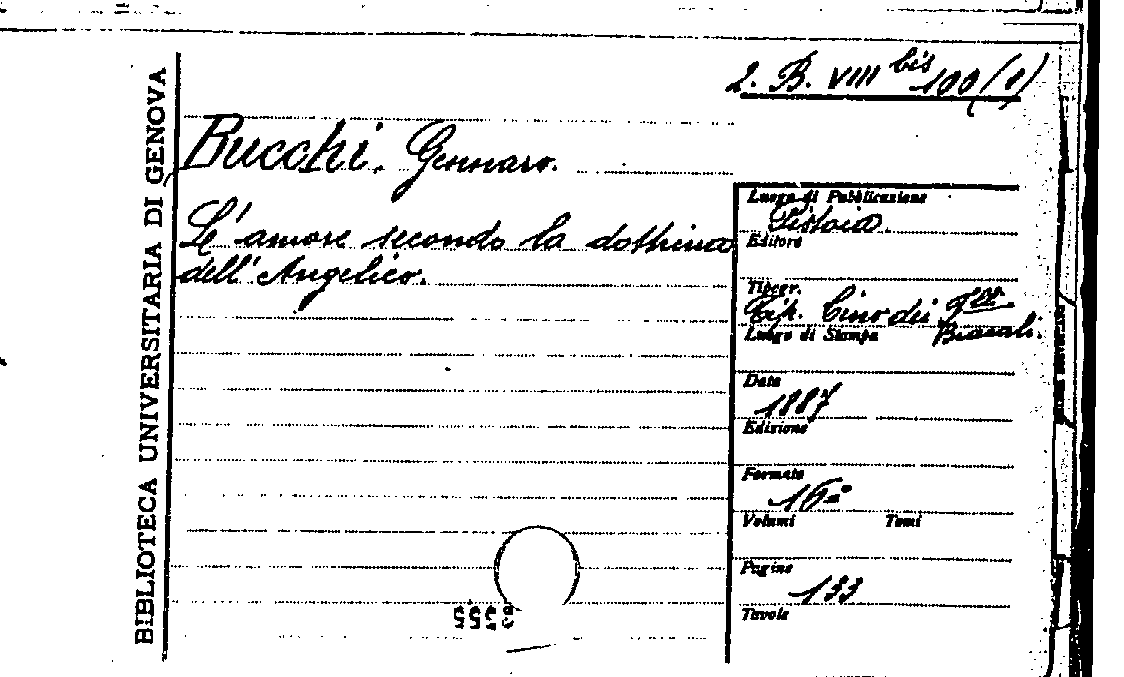 2. B. VIII bis 100 (1)
BIBLIOTECA UNIVERSITARIA DI GENOVA
Bucchi. Gennaro.
L'amore secondo la dottrina
dell'Angelico.
Luogo di Pubblicazione
Pistoia.
Editore
Tipogr.
Tip. Cino dei Flli
Bracali.
Luogo di Stampa
Data
1887
Edizione
Formato
16°
Volumi Tomi
Pagine
133
Tavole